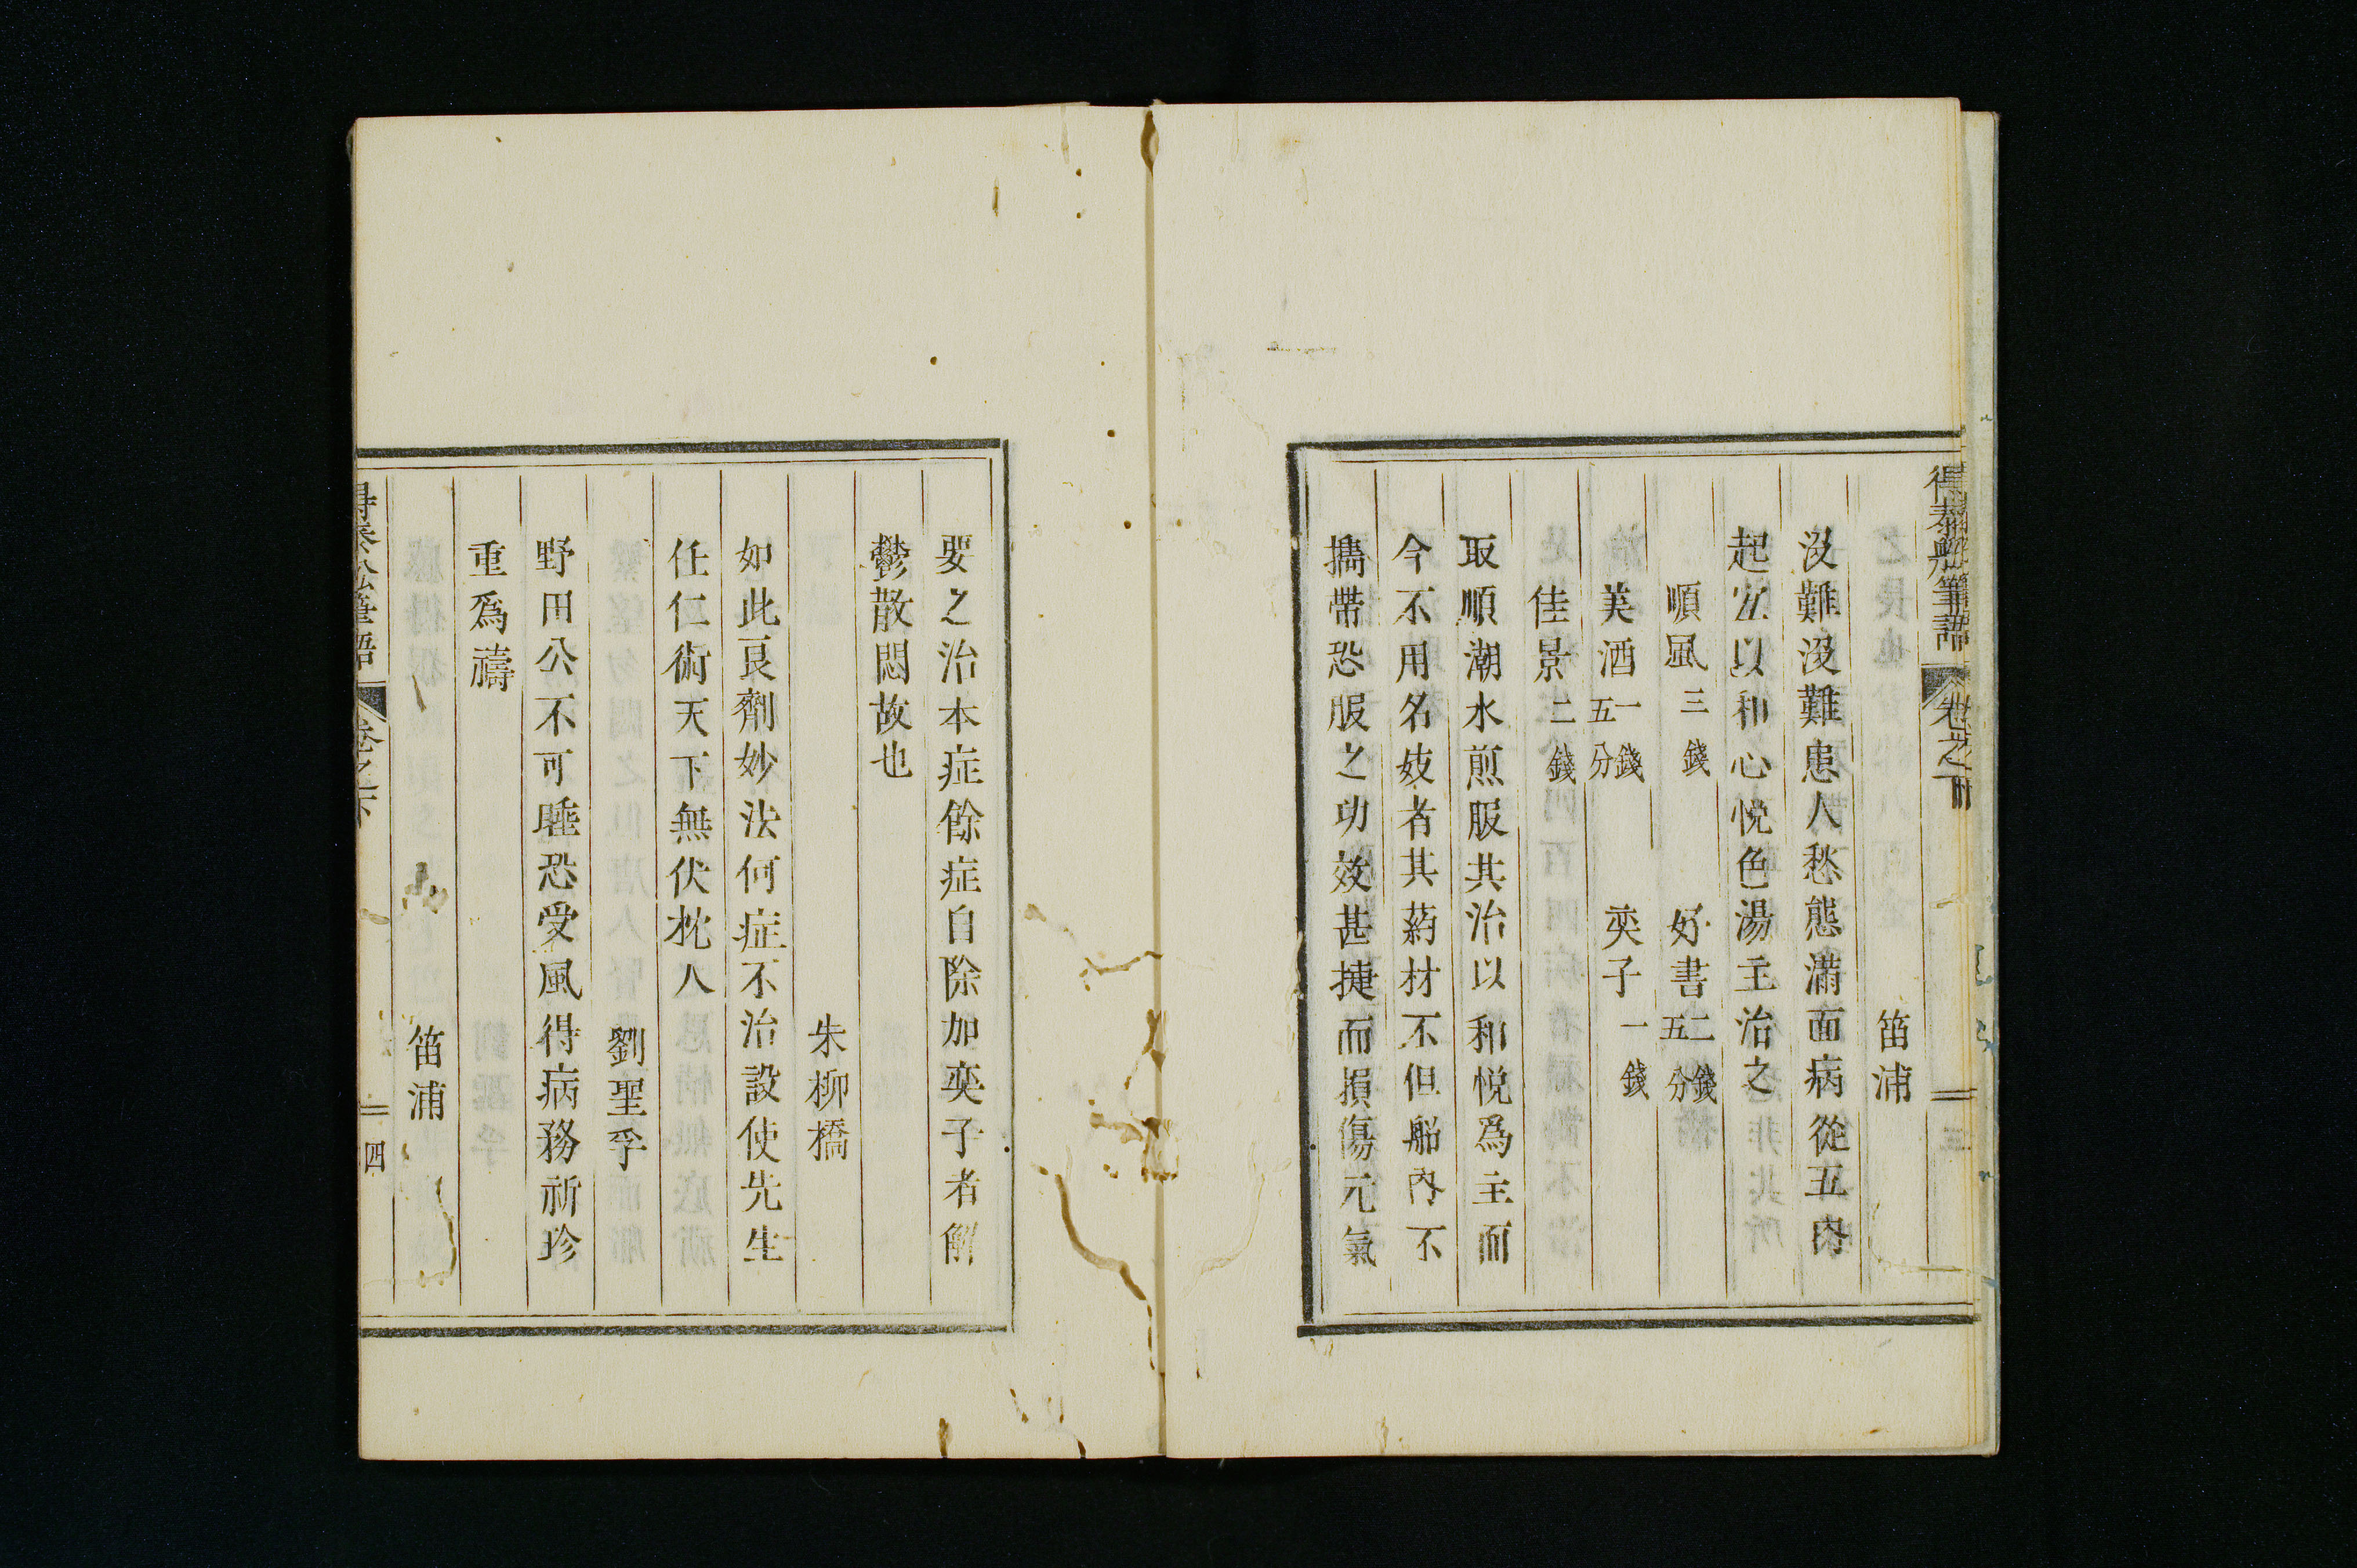 得泰船筆語 卷之下 三
笛浦
没難没難患人愁態滿面病從五内
起宜以和心悅色湯主治之
順風三錢 好書二錢五分
美酒一錢五分 奕子一錢
佳景二錢
取順潮水煎服其治以和悅爲主而
今不用名妓者其葯材不但船内不
攜帶恐服之功效甚捷而損傷元氣
要之治本症餘症自除加奕子者解
鬱散悶故也
朱柳橋
如此良劑妙法何症不治設使先生
任仁術天下無伏枕人
劉聖孚
野田公不可睡恐受風得病務祈珍
重爲禱
笛浦
得泰船筆語 卷之下 四